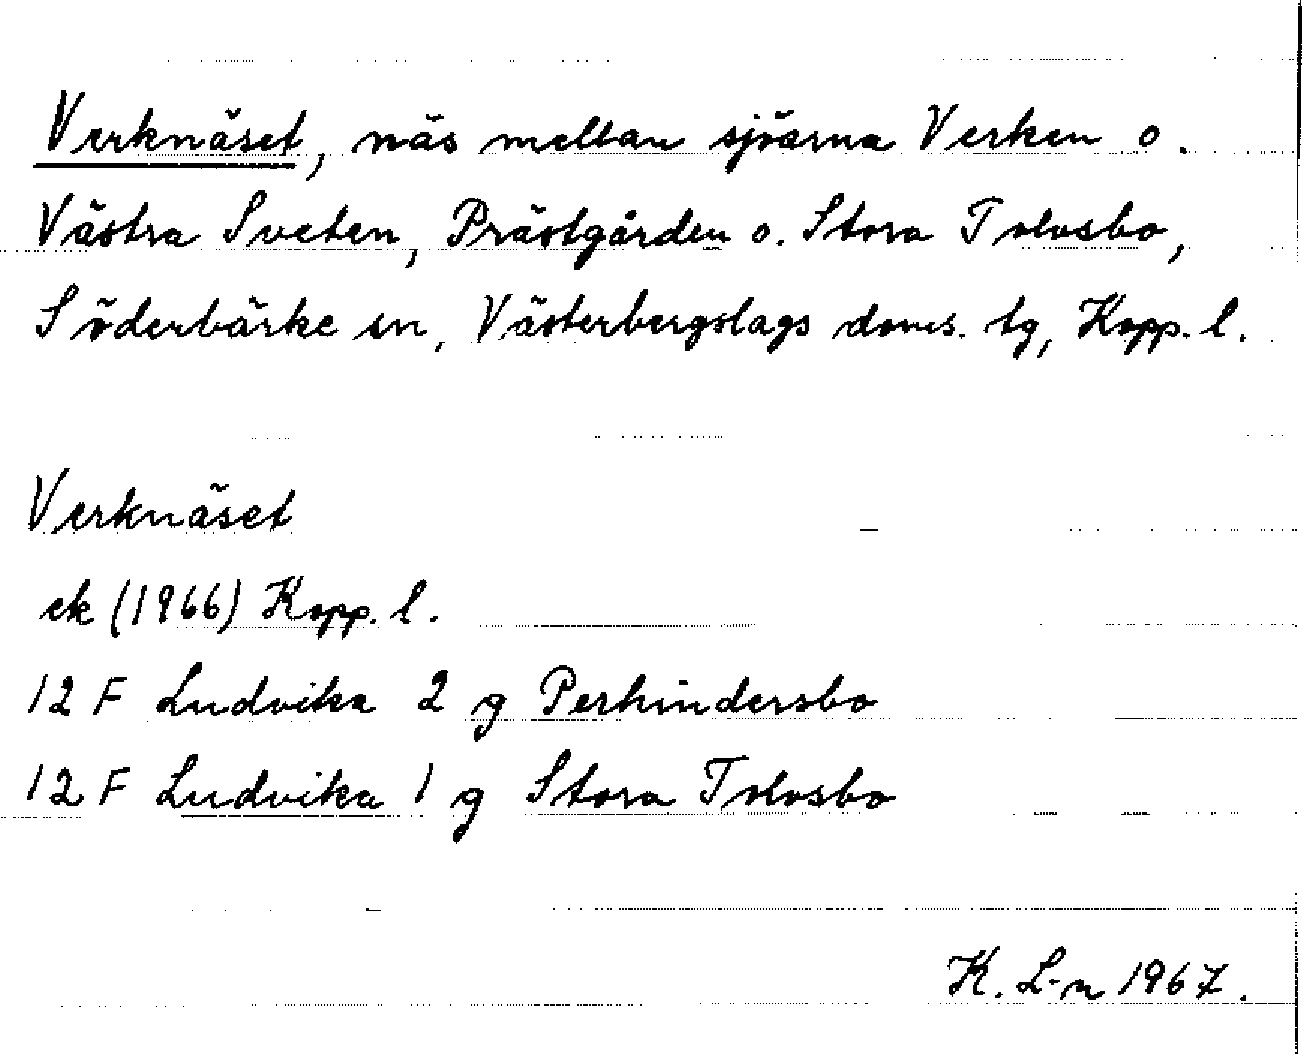 Verknäset, näs mellan sjöarna Verken o.
Västra Sveten, Prästgården o. Stora Tolvsbo,
Söderbärke sn, Västerbergslags doms. tg, Kopp. l.
Verknäset
ek (1966) Kopp. l.
12 F Ludvika 2 g Perhindersbo
12 F Ludvika 1 g Stora Tolvsbo
K. L-n 1967.